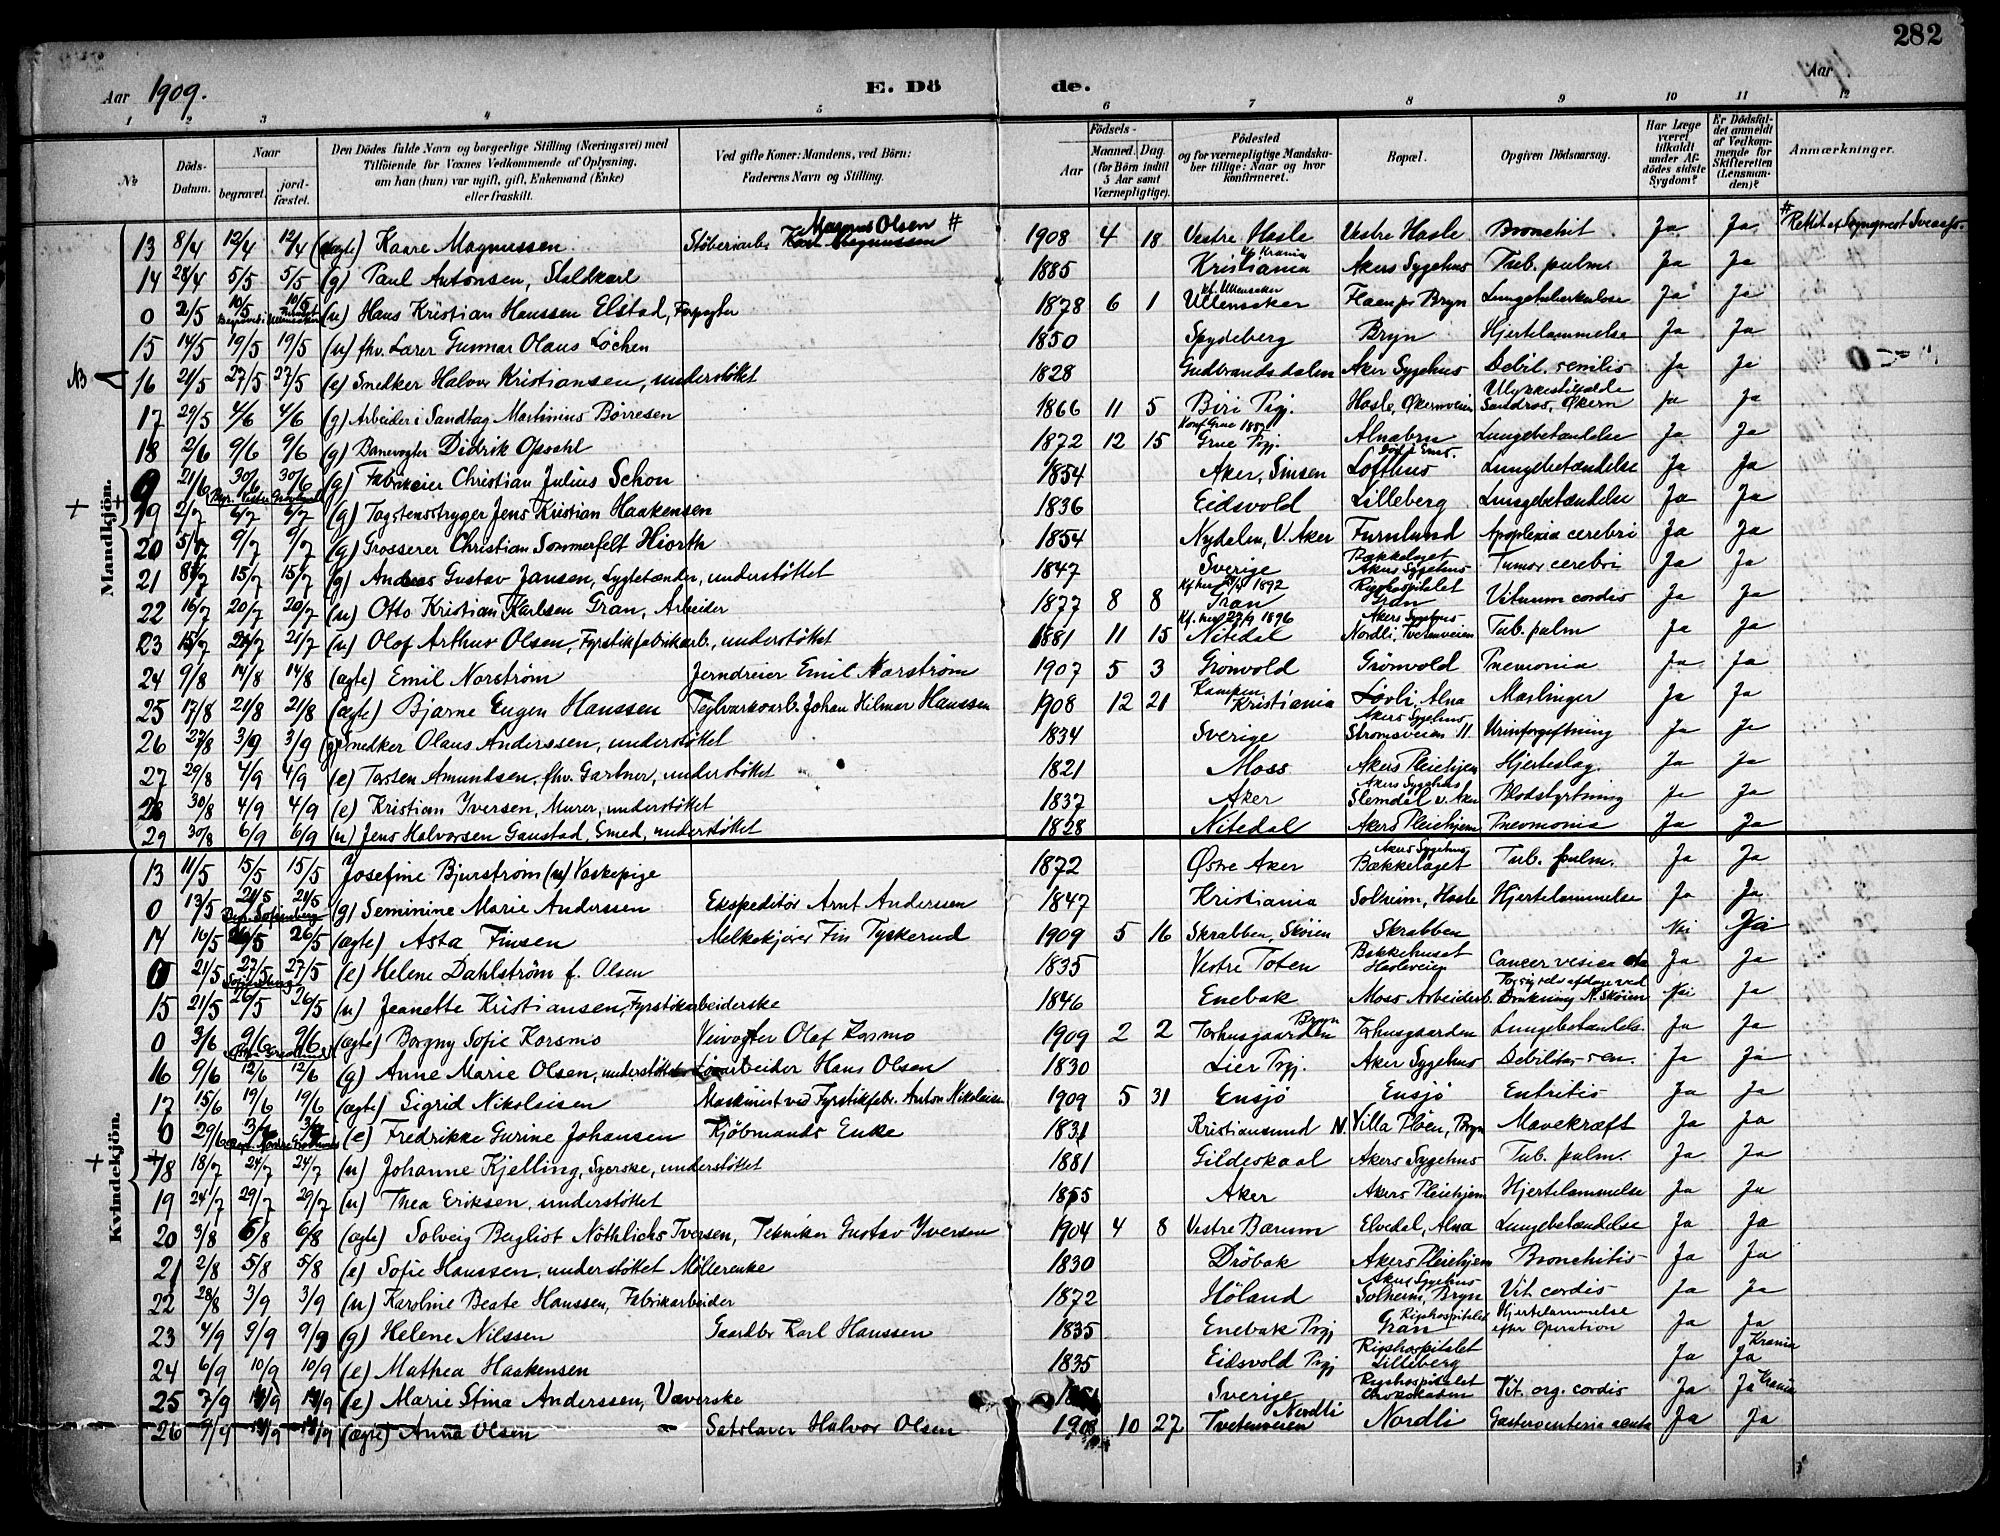 282
Aar 1909. E. Dö de. Aar
1 2 3 4 5 6 7 8 9 10 11 12
№ Döds-Datum. Naar begravet. jordfæstet. Den Dödes fulde Navn og borgerlige Stilling (Næringsvei) med Tilföiende for Voxnes Vedkommende af Oplysning, om han (hun) var ugift, gift, Enkemand (Enke) eller fraskilt. Ved gifte Koner: Mandens, ved Börn: Faderens Navn og Stilling. Födsels- Aar Maaned. Dag (for Börn indtil 5 Aar samt Værnepligtige). Födested og for værnepligtige Mandskaber tillige: Naar og hvor konfirmeret. Bopæl. Opgiven Dödsaarsag. Har Læge været tilkaldt under Afdödes sidste Sygdom? Er Dödsfaldet anmeldt af Vedkommende for Skifteretten (Lensmanden)? Anmærkninger.
Mandkjön.
13 8/4 12/4 12/4 (ægte) Kaare Magnussen Støberiarb. Karl Magnussen Magnus Olsen # 1908 4 18 Vestre Hasle Vestre Hasle Bronchit Ja Ja # Rettet af Sogneprest
14 28/4 5/5 5/5 (g) Paul Antonsen, Staldkarl 1885 Kristiania Akers Sygehus Tub. pulm. Ja Ja
0 2/5 10/5 10/5 (u) Hans Kristian Hanssen Elstad, Forpagter 1878 6 1 kf. Ullensaker Ullensaker Flaen pr Bryn Lungetuberkulose Ja Ja
15 14/5 19/5 19/5 (u) fhv. Lærer Gunnar Olaus Løchen 1850 Spydeberg Bryn Hjertelammelse Ja Ja
NB 16 21/5 27/5 27/5 (e) Snedker Halvor Kristiansen, understøttet 1828 Gudbrandsdalen Aker Sygehus Debil. senilis Ja Ja
17 29/5 4/6 4/6 (g) Arbeider i Sandtag Martinius Børresen 1866 11 5 Biri Prgj. Hasle, Økernveien Ulykkestilfælde Sandras, Økern Ja Ja
18 2/6 9/6 9/6 (g) Banevogter Didrik Opsahl 1872 12 15 Konf. Grue 1887 Grue Prgj. Alnabru Lungebetændelse Ja Ja
0 21/6 30/6 30/6 (g) Fabrikeier Christian Julius Schou 1854 Aker, Sinsen Lofthus Lungebetændelse Ja Ja
+ 19 2/7 6/7 6/7 (g) Tagstensstryger Jens Kristian Haakensen 1836 Eidsvold Lilleberg Lungebetændelse Ja Ja
20 5/7 9/7 9/7 (g) Grosserer Christian Sommerfelt Hiorth 1854 Nydalen, V. Aker Furulund Apoplexia cerebri Ja Ja
21 8/7 15/7 15/7 (g) Andreas Gustav Jansen, Lygtetænder, understøttet 1847 Sverige Bækkelaget Akers Sygehus Tumor cerebri Ja Ja
22 16/7 20/7 20/7 (u) Otto Kristian Karlsen Gran, Arbeider 1877 8 8 Gran Rigshospitalet Gran Vitium cordis Ja Ja
23 15/7 21/7 21/7 (u) Olaf Arthur Olsen, Fyrstikfabrikarb., understøttet 1881 11 15 Nitedal Akers Sygehus Nordli, Tvetenveien Tub. pulm Ja Ja
24 9/8 14/8 14/8 (ægte) Emil Norstrøm Jerndreier Emil Norstrøm 1907 5 3 Grønvold Grønvold Pnevmonia Ja Ja
25 17/8 21/8 21/8 (ægte) Bjarne Eugen Hanssen Teglværksarb. Johan Hilmar Hanssen 1908 12 21 Kampen Kristiania Løvli, Alna Mæslinger Ja Ja
26 27/8 3/9 3/9 (g) Snedker Olaus Anderssen, understøttet 1834 Sverige Akers Sygehus Strømsveien 11 Urinforgiftning Ja Ja
27 29/8 4/9 4/9 (e) Torsten Amundsen, fhv. Gartner, understøttet 1821 Moss Akers Pleiehjem Hjerteslag. Ja Ja
28 30/8 4/9 4/9 (e) Kristian Iversen, Murer, understøttet 1837 Aker Akers Sygehus Slemdal v. Aker Blodstyrtning Ja Ja
29 30/8 6/9 6/9 (u) Jens Halvorsen Gaustad, Smed, understøttet 1828 Nitedal Akers Pleiehjem Pnevmonia Ja Ja
Kvindekjön.
13 11/5 15/5 15/5 Josefine Bjurstrøm (u) Vaskepige 1872 Østre Aker Akers Sygehus Bækkelaget Tub. pulm. Ja Ja
0 13/5 20/5 20/5 Begr. Sofienberg (g) Seminine Marie Anderssen Ekspeditør Arnt Anderssen 1847 Kristiania Solheim, Hasle Hjertelammelse Ja Ja
14 16/5 26/5 26/5 (ægte) Asta Finsen Melkekjører Fin Tyskerud 1909 5 16 Skrabben, Skøien Skrabben Nei Ja
0 21/5 27/5 27/5 (e) Helene Dahlstrøm f. Olsen 1835 Vestre Toten Bakkehuset Hasleveien Cancer vesica Ja Ja
15 21/5 26/5 26/5 (u) Jeanette Kristiansen, Fyrstikarbeiderske 1846 Enebak Moss Arbeiderb. Tog sig selv afdage ved Drukning N. Skøien Nei Ja
0 3/6 9/6 9/6 (ægte) Borgny Sofie Korsmo Veivogter Olaf Korsmo 1909 2 2 Bryn Torhusgaarden Torhusgaarden Lungebetændels. Ja Ja
16 9/6 12/6 12/6 (g) Anne Marie Olsen, understøttet Løsarbeider Hans Olsen 1830 Lier Prgj. Aker Sygehus Debilitas sen. Ja Ja
17 15/6 19/6 19/6 (ægte) Sigrid Nikolaisen Maskinist ved Fyrstikfabr. Anton Nikolaisen 1909 5 31 Ensjø Ensjø Entritis Ja Ja
0 29/6 3/7 3/7 (e) Fredrikke Gurine Johansen Kjøbmands Enke 1831 Kristiansund N. Villa Pløen, Bryn Mavekræft Ja Ja
+ 18 18/7 24/7 24/7 (u) Johanne Kjelling, Syerske, understøttet 1881 Gildeskaal Akers Sygehus Tub. pulm. Ja Ja
19 24/7 29/7 29/7 (u) Thea Eriksen, understøttet 1855 Aker Akers Pleiehjem Hjertelammelse Ja Ja
20 3/8 6/8 6/8 (ægte) Solveig Bergliot Nöthlichs Iversen, Tekniker Gustav Yversen 1904 4 8 Vestre Bærum Elvedal, Alna Lungebetændelse Ja Ja
21 2/8 5/8 5/8 (e) Sofie Hanssen, understøttet Møllerenke 1830 Drøbak Akers Pleiehjem Bronchitis Ja Ja
22 28/8 3/9 3/9 (u) Karoline Beate Hanssen, Fabrikarbeider 1872 Høland Akers Sygehus Solheim, Bryn Vit. cordis Ja Ja
23 4/9 9/9 9/9 (g) Helene Nilssen Gaardbr Karl Hanssen 1835 Enebak Prgj Rigshospitalet Gran Hjertelammelse efter Operation Ja Ja
24 6/9 10/9 10/9 (e) Mathea Haakensen 1835 Eidsvold Prgj Rigshospitalet Lilleberg Ja Ja Krania
25 7/9 (e) Marie Stina Anderssen, Væverske Sverige Rigshospitalet Vit. org. cordis Ja Ja Krania
26 9/9 (ægte) Anna Olsen Sætslaver Halvor Olsen 1908 10 27 Nordli Tvetenveien Nordli Gastroenteria Ja Ja